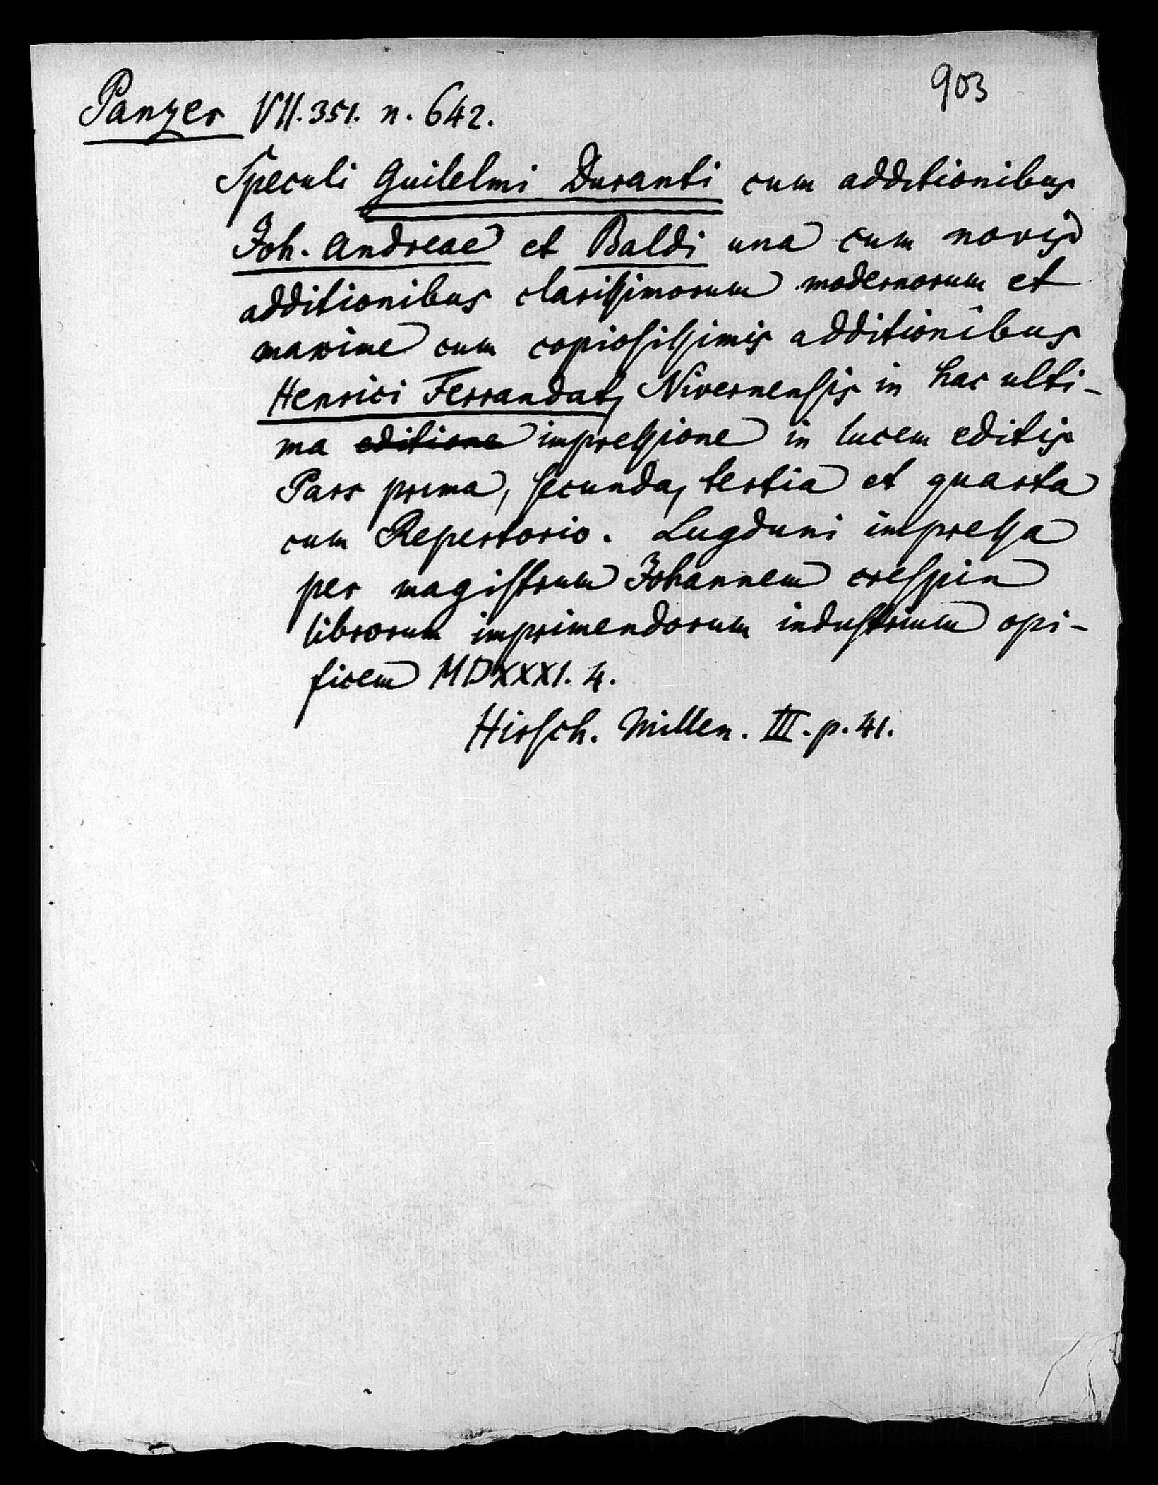 903
Panzer VII. 351. n. 642.
Speculi Guilelmi Duranti cum additionibus
Joh. Andreae et Baldi una cum novis
additionibus clarissimorum modernorum et
maxime cum copiosissimis additionibus
Henrici Ferrandat, Nivernensis in hac ulti-
ma editione impressione in lucem editis
Pars prima, secunda, tertia et quarta
cum Repertorio. Lugduni impressa
per magistrum Johannem crespin
librorum imprimendorum industrium opi-
ficem MDXXXI. 4.
Hirsch. Millen. III. p. 41.